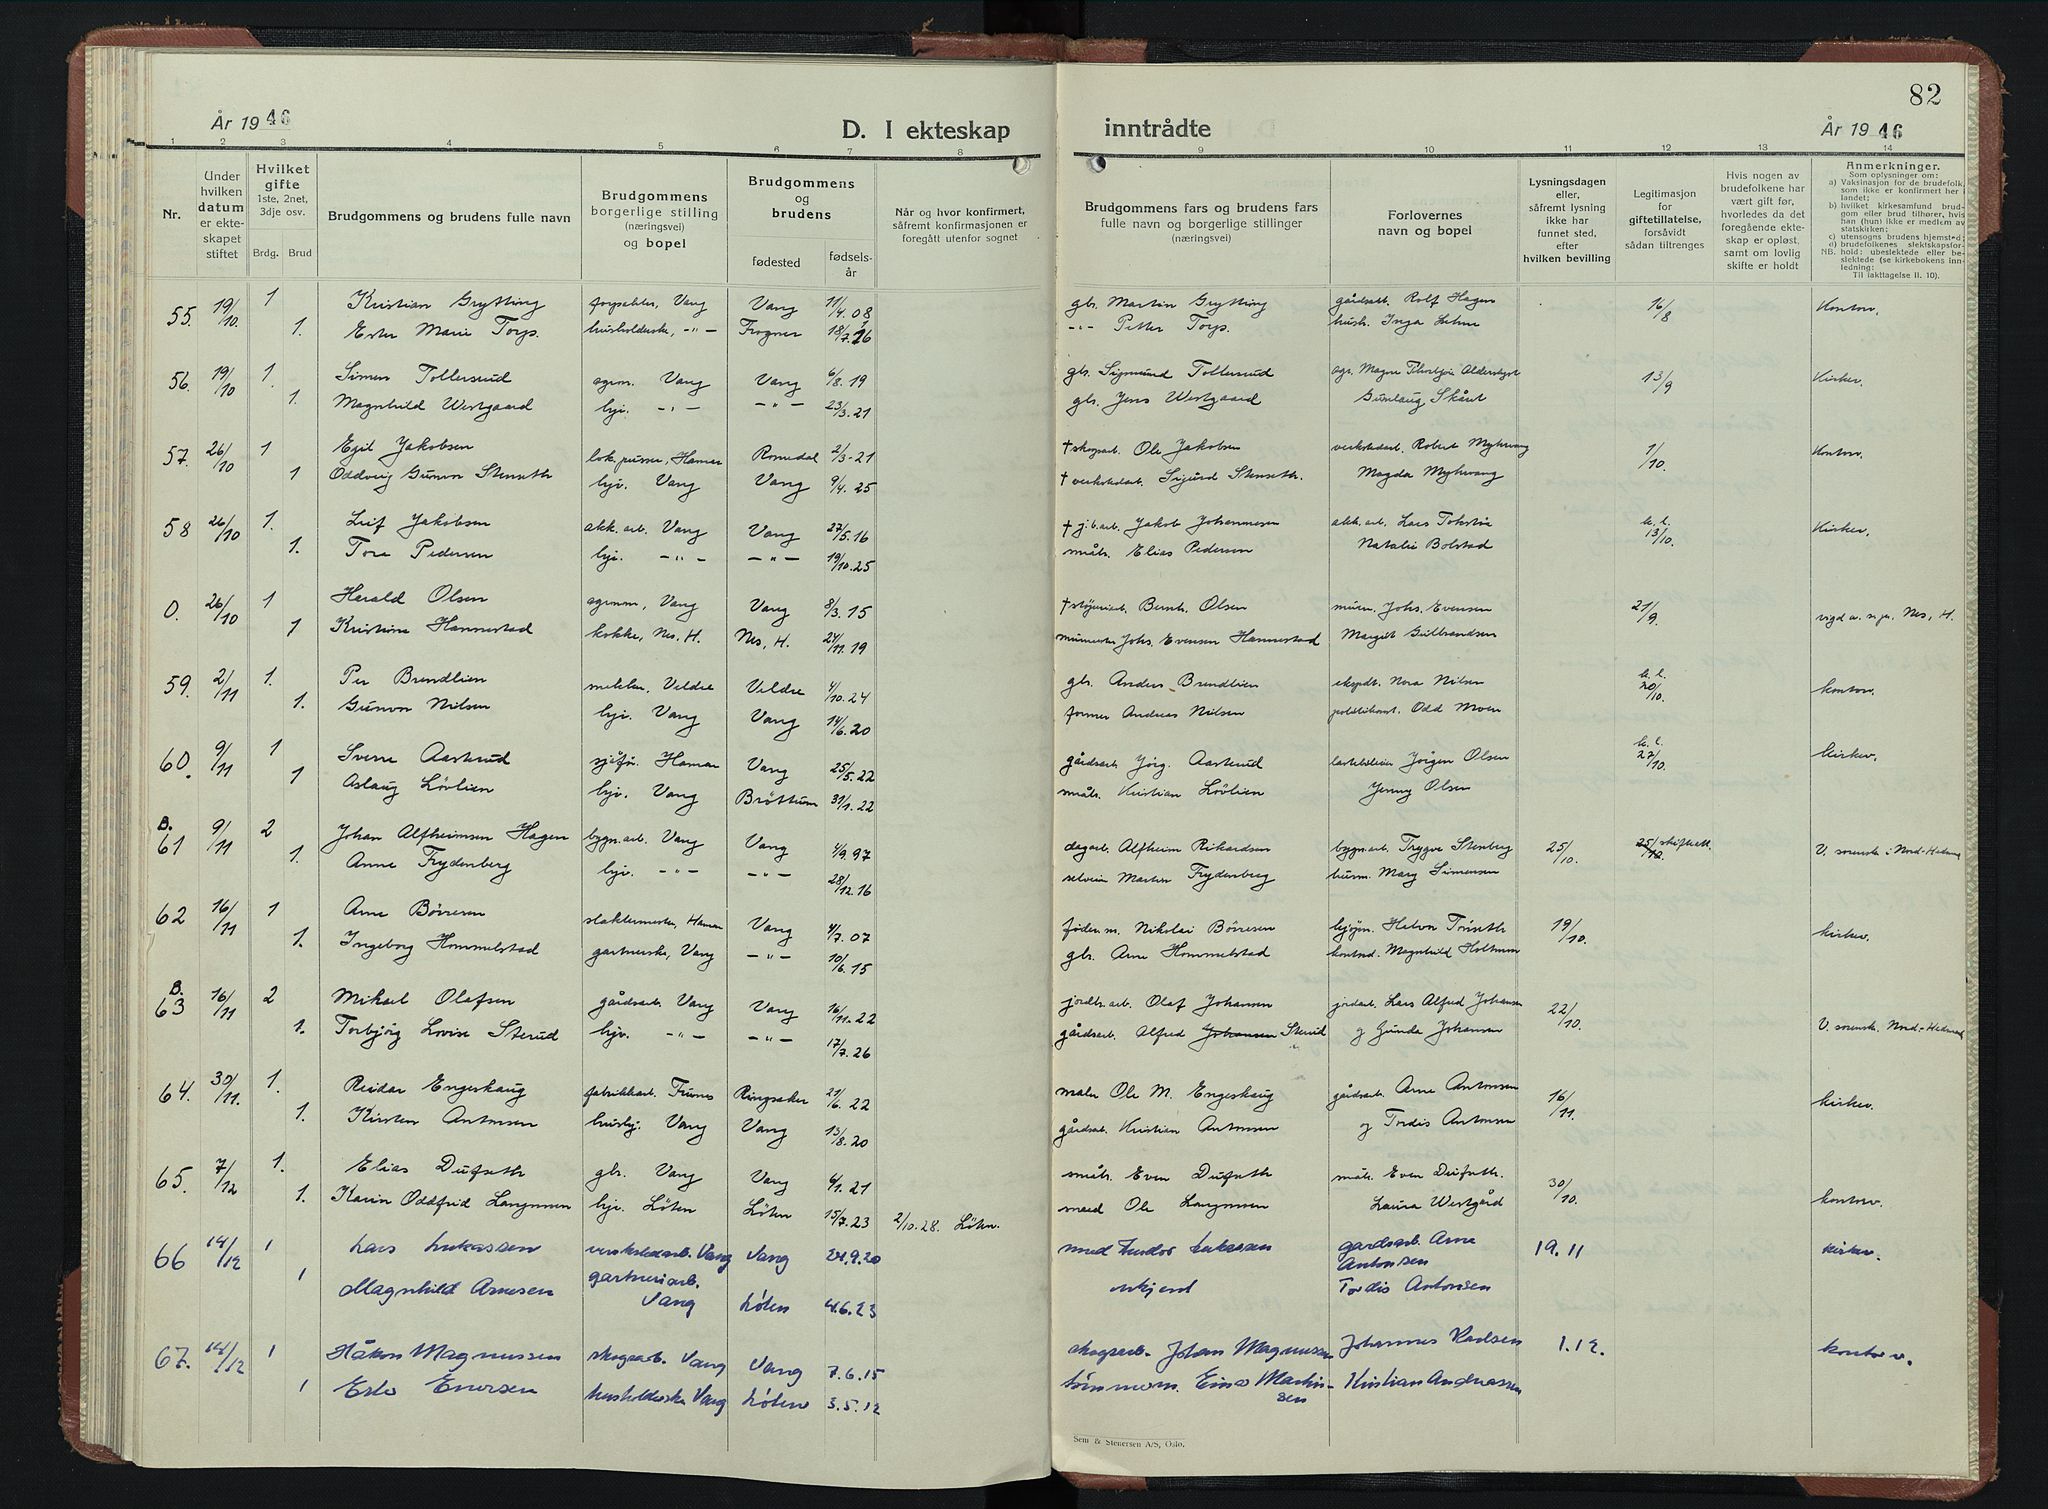 82
År 19 46
D. I ekteskap inntrådte
År 19 46
1 2 3 4 5 6 7 8 9 10 11 12 13 14
Nr.
Under hvilken datum er ekteskapet stiftet
Hvilket gifte 1ste, 2net, 3dje osv.
Brdg. Brud
Brudgommens og brudens fulle navn
Brudgommens borgerlige stilling (næringsvei) og bopel
Brudgommens og brudens
fødested
fødselsår
Når og hvor konfirmert, såfremt konfirmasjonen er foregått utenfor sognet
Brudgommens fars og brudens fars fulle navn og borgerlige stillinger (næringsvei)
Forlovernes navn og bopel
Lysningsdagen eller, såfremt lysning ikke har funnet sted, efter hvilken bevilling
Legitimasjon for giftetillatelse, forsåvidt sådan tiltrenges
Hvis nogen av brudefolkene har vært gift før, hvorledes da det foregående ekteskap er opløst, samt om lovlig skifte er holdt
Anmerkninger.
Som oplysninger om:
a) Vaksinasjon for de brudefolk, som ikke er konfirmert her i landet;
b) hvilket kirkesamfund brudgom eller brud tilhører, hvis han (hun) ikke er medlem av statskirken;
c) utensogns brudens hjemsted;
d) brudefolkenes slektskapsforhold: ubeslektede eller beslektede (se kirkebokens innledning:
NB. Til iakttagelse II. 10).
55. 19/10. 1 Kristian Grytting Vang Vang 11/4. 08 gbr. Martin Grytting gårdsarb. Rolf Hagen 16/8 Kontorv.
1. Ester Marie Torp. husholderske, -"- Frogner 18/7. 16 -"- Petter Torp. Inga
56. 19/10 1. Simen Tollersrud agron. Vang Vang 6/8. 19 gbr. Sigmund Tollersrud 13/9 Kirkev.
1. Magnhild Westgaard hjv. -"- -"- 23/3. 21 gbr. Jens Westgaard Gunlaug
57. 26/10 1 Egil Jakobsen lok.pusser, Hamar Romedal 2/3-21 † skogsarb. Ole Jakobsen verkstedarb. Robert Myhrvang 1/10. Kontorv.
1 Oddveig Gunvor Stenseth hjv. Vang Vang 9/4. 25 † verkstedarb. Sigurd Stenseth. Magda Myhrvang
58 26/10 1. Leif Jakobsen akk.arb. Vang Vang 27/5. 16 † j.b.arb. Jakob Johannesen akk.arb. Lars k.l. 13/10. Kirkev.
1. Tora Pedersen hjv. -"- -"- 19/10. 25 småbr. Elias Pedersen Natalie Bolstad
0. 26/10 1 Harald Olsen agronom, Vang Vang 8/3. 15 Bernh. Olsen murer. Johs. Evensen 21/9. vigd av s.pr. Nes, H.
1 Kristine Hannestad kokke, Nes. H. Nes, H. 24/11. 19 murmester Johs. Evensen Hannestad Margit Gulbrandsen
59. 2/11 1. Per Brendlien møller, Veldre Veldre 4/10. 24 gbr. Anders Brendlien ekspdt. Nora Nilsen k.l. 20/10. kontorv.
1. Gunvor Nilsen hjv. Vang Vang 14/6. 20 former Andreas Nilsen politikonst. Odd Moen
60. 9/11 1 Sverre Aasterud sjåfør. Hamar Vang 25/5. 22 gårdsarb. Jørg. Aasterud lastebileier Jørgen Olsen k.l. 27/10. kirkev.
1 Aslaug Løvlien hjv. Vang Brøttum 31/1. 22 småbr. Kristian Løvlien Jenny Olsen
B. 61 9/11 2 Johan Alfheimsen Hagen bygn.arb. Vang Vang 4/9. 97 dagarb. Alfheim Rikardsen bygn.arb. Trygve Stenberg 25/10. 25/10. skifteatt. V. sorenskr. i Nord-Hedmark
1. Anne Frydenberg hjv. -"- -"- 28/12. 16 selveier Martin Frydenberg husm. Mary Simensen
62 16/11 1 Arne Børresen slaktermester, Hamar Vang 4/7. 07 Nikolai Børresen Halvor 19/10. kirkev.
1. Ingeborg Hommelstad gartnerske, Vang -"- 10/6. 15 gbr. Arne Hommelstad Magnhild Holtmoen
B. 63 16/11 2 Mikael Olafsen gårdsarb. Vang Vang 16/11. 22 jordbr.arb. Olaf Johansen jordarb. Lars Alfred Johansen 22/10. V. sorenskr. Nord-Hedmark
1. Torbjørg Lovise Sterud hjv. -"- -"- 17/7. 26 gårdsarb. Alfred Johansen Sterud og Gunda Johansen
64. 30/11. 1. Reidar Engeskaug fabrikkarb. Furnes Ringsaker 21/6. 22 maler Ole M. Engeskaug gårdsarb. Arne Antonsen 16/11. kirkev.
1. Kirsten Antonsen hushj. Vang Vang 13/8. 20 gårdsarb. Kristian Antonsen og Tordis Antonsen
65. 7/12 1. Elias Dufseth gbr. Vang Vang 6/1. 21 småbr. Even Dufseth småbr. Even Dufseth. 30/10. kontorv.
1. Karin Oddfrid Langmoen hjv. Løten Løten 15/7. 23 2/10. 28. Løten. smed Ole Langmoen Laura Westgård
66 14/12 1 Lars Lukassen verkstedarb. Vang Vang 24.9.20 smed Lukassen gardsarb. Arne Antonsen 19.11 kirkev.
1 Magnhild Arnesen gartneriarb. Vang Løten 4.6.23 ukjent Tordis Antonsen
67. 14/12 1 Håkon Magnussen skogsarb. Vang Vang 7.6.15 skogsarb. Johan Magnussen Johannes 1.12. kontorv.
1 Enersen husholderske Vang Løten 3.5.12 tømmerm. Martinsen Kristian Andreassen
Sem & Stenersen A/S, Oslo.